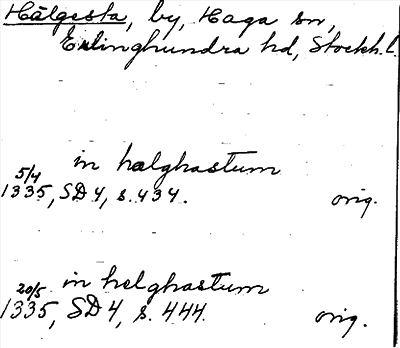 Hälgesta, by, Haga sn,
Erlinghundra hd, Stockh. l.
in halghastum
5/4
1335, SD 4, s. 434. orig.
in helghastum
20/5
1335, SD 4, s. 444. orig.